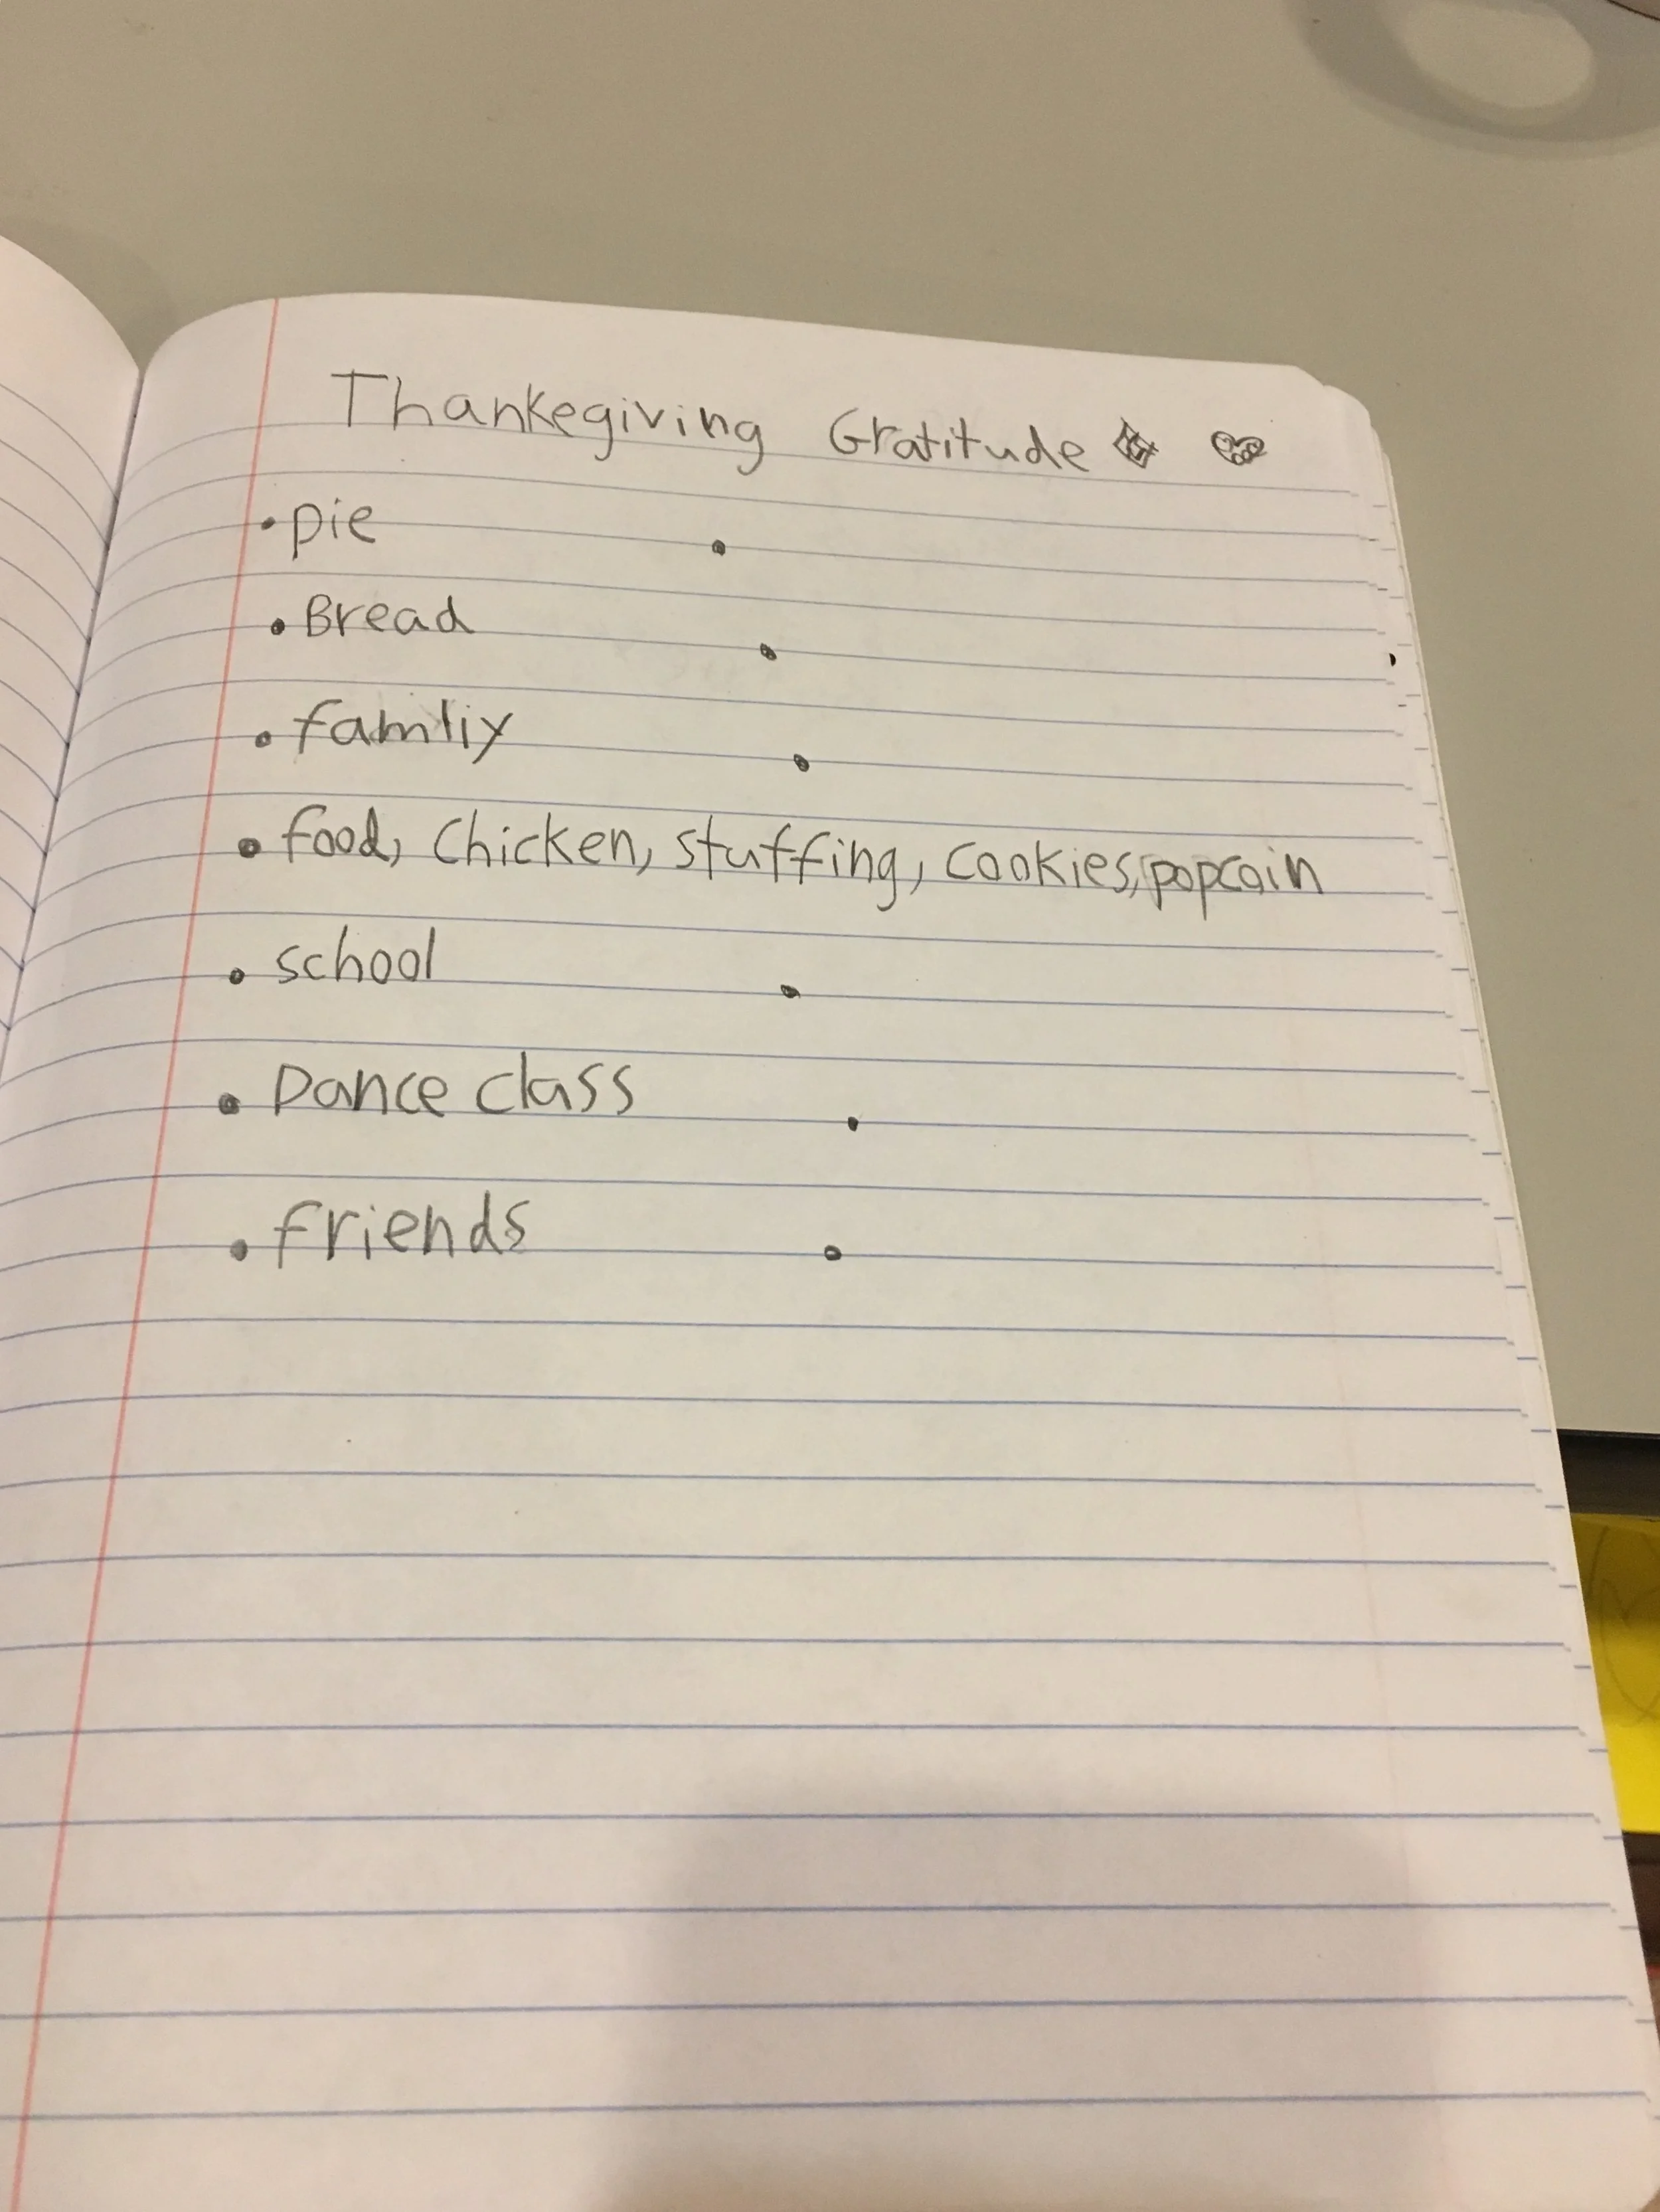 Thankegiving Gratitude
• pie •
• Bread •
• famliy •
• food, Chicken, stuffing, cookies, popcoin
• school •
• Dance class •
• friends •